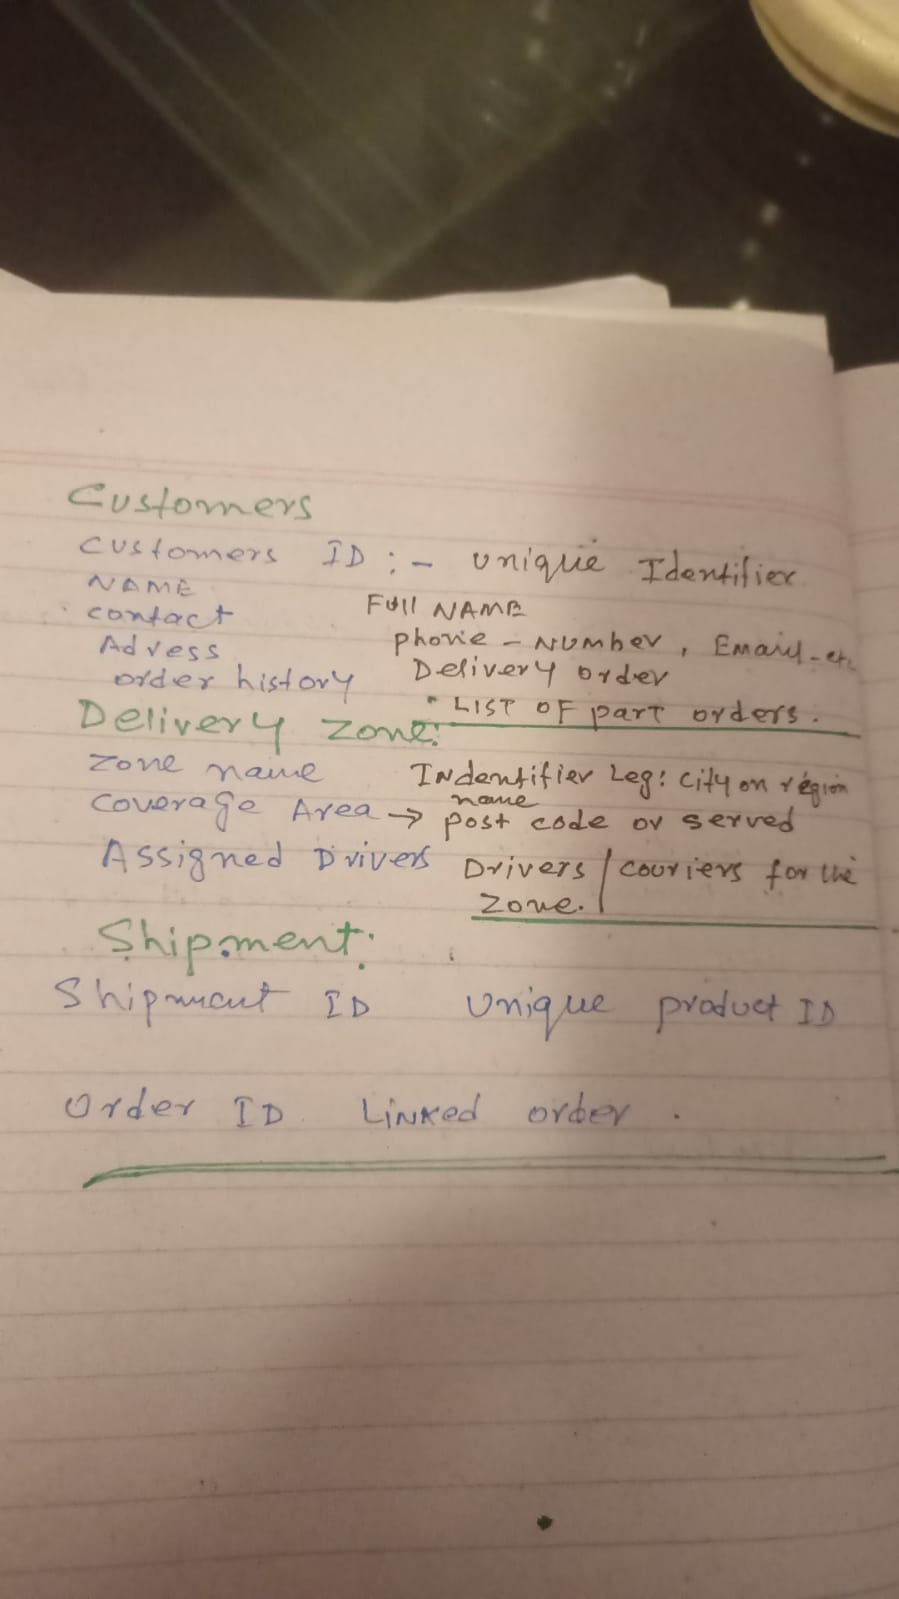 Customers
Customers ID :- unique Identifier
NAME
Full NAME
contact
phone - NUMBER, Email-etc
Adress
Delivery order
order history
• LIST OF part orders.
Delivery zone:
Zone name Indentifier Leg: City on region
name
Coverage Area → post code or served
Assigned Drivers Drivers / couriers for the
Zone.
Shipment:
Shipment ID Unique product ID
Order ID LINKed order .